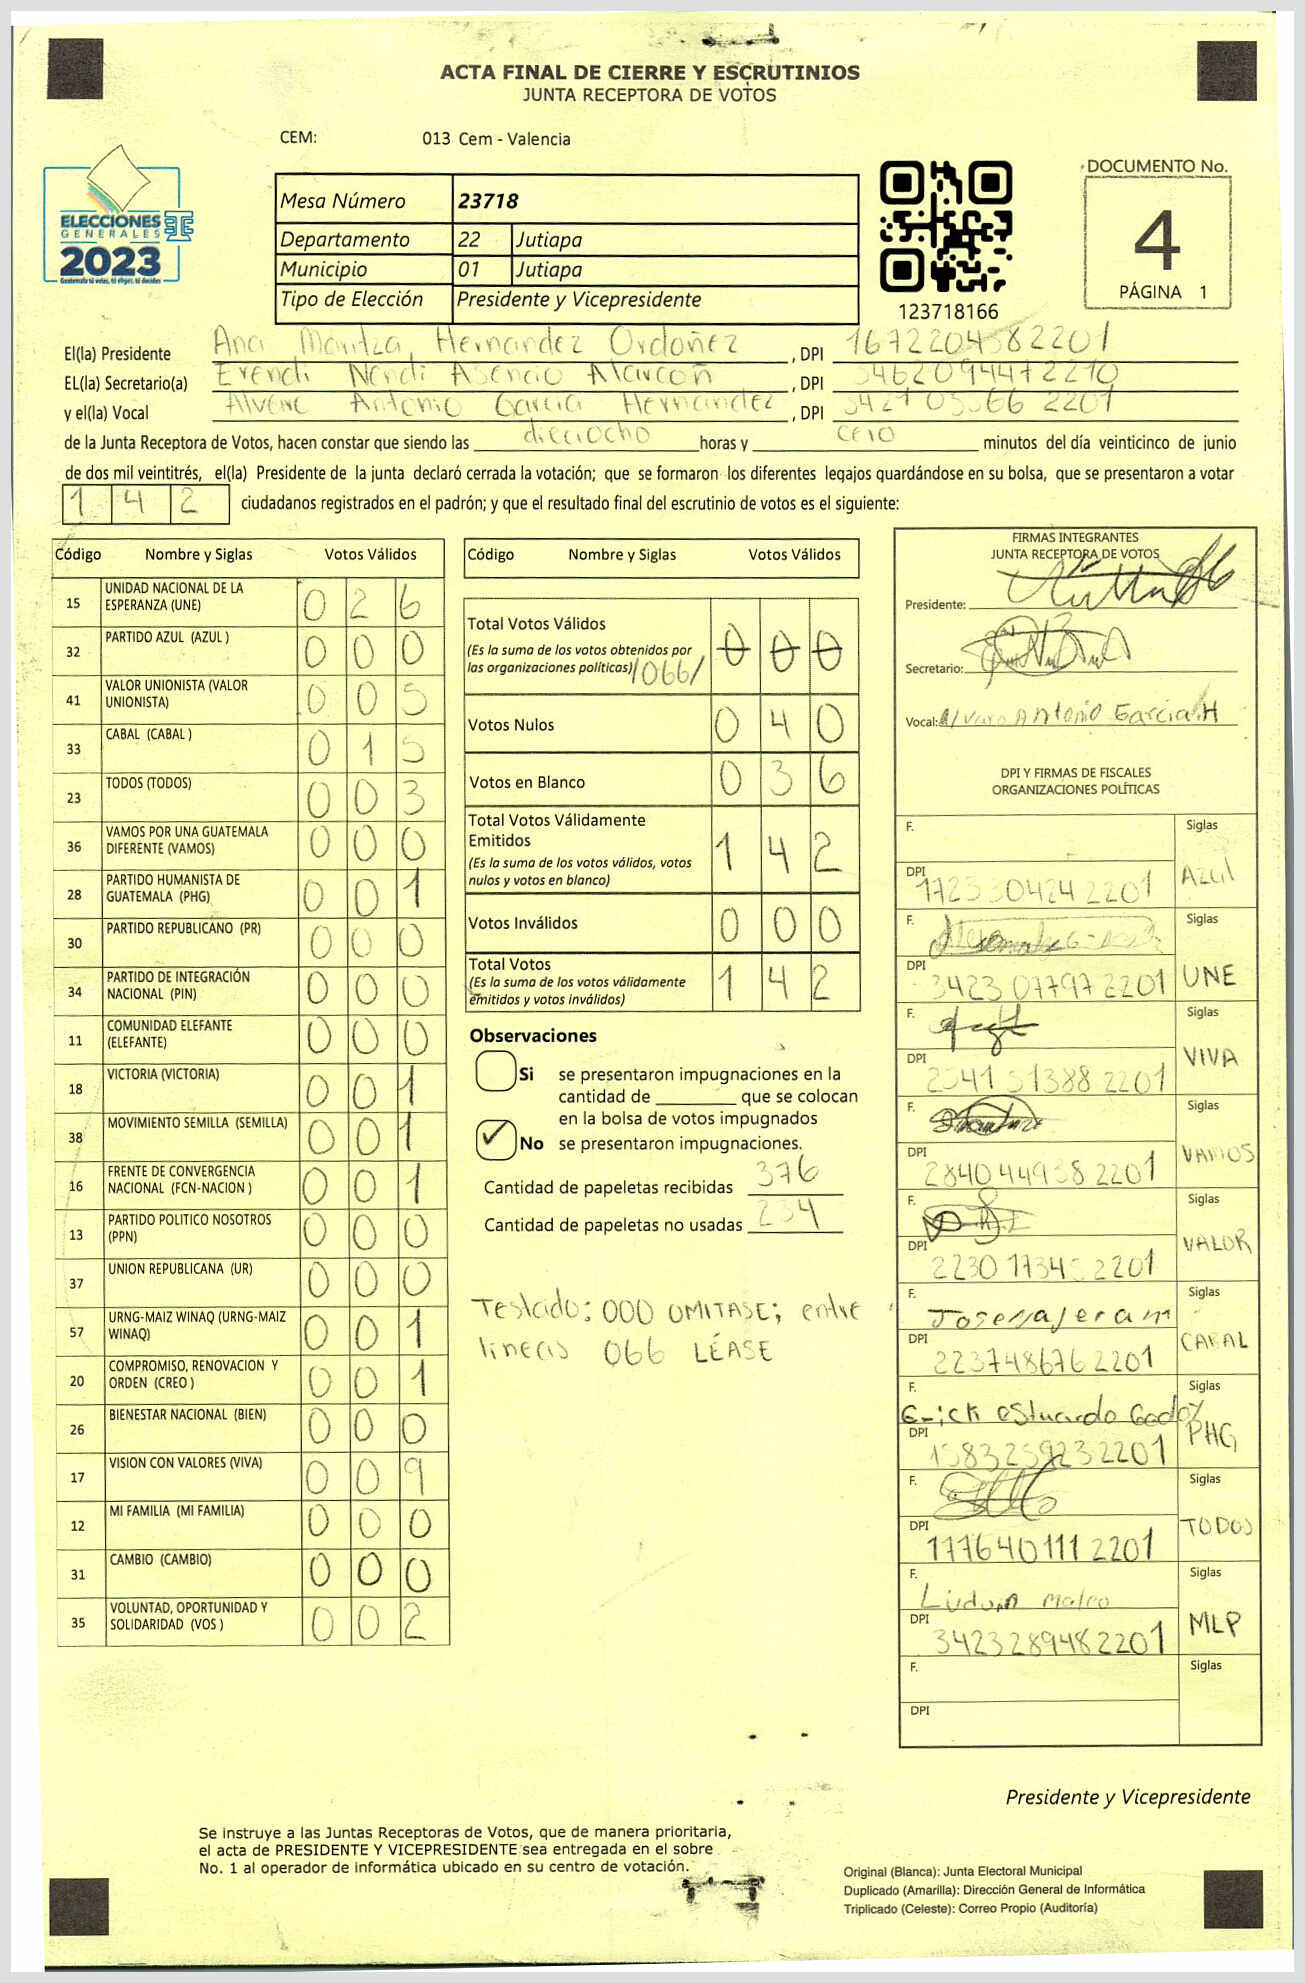 ACTA FINAL DE CIERRE Y ESCRUTINIOS
JUNTA RECEPTORA DE VOTOS
CEM: 013 Cem - Valencia
ELECCIONES
GENERALES
2023
Guatemala tú votas, tú eliges, tú decides
Mesa Número 23718
Departamento 22 Jutiapa
Municipio 01 Jutiapa
Tipo de Elección Presidente y Vicepresidente
123718166
DOCUMENTO No.
4
PÁGINA 1
El(la) Presidente Ana Maritza Hernandez Ordoñez, DPI 1672204582201
EL(la) Secretario(a) Erendi Nendi Asencio Alarcon, DPI 3462094472210
y el(la) Vocal Alvaro Antonio Garcia Hernandez, DPI 2201
de la Junta Receptora de Votos, hacen constar que siendo las dieciocho horas y cero minutos del día veinticinco de junio
de dos mil veintitrés, el(la) Presidente de la junta declaró cerrada la votación; que se formaron los diferentes legajos quardándose en su bolsa, que se presentaron a votar
1 4 2 ciudadanos registrados en el padrón; y que el resultado final del escrutinio de votos es el siguiente:
Código Nombre y Siglas Votos Válidos
15 UNIDAD NACIONAL DE LA ESPERANZA (UNE) 0 2 6
32 PARTIDO AZUL (AZUL ) 0 0 0
41 VALOR UNIONISTA (VALOR UNIONISTA) 0 0 5
33 CABAL (CABAL ) 0 1 5
23 TODOS (TODOS) 0 0 3
36 VAMOS POR UNA GUATEMALA DIFERENTE (VAMOS) 0 0 0
28 PARTIDO HUMANISTA DE GUATEMALA (PHG) 0 0 1
30 PARTIDO REPUBLICANO (PR) 0 0 0
34 PARTIDO DE INTEGRACIÓN NACIONAL (PIN) 0 0 0
11 COMUNIDAD ELEFANTE (ELEFANTE) 0 0 0
18 VICTORIA (VICTORIA) 0 0 1
38 MOVIMIENTO SEMILLA (SEMILLA) 0 0 1
16 FRENTE DE CONVERGENCIA NACIONAL (FCN-NACION ) 0 0 1
13 PARTIDO POLITICO NOSOTROS (PPN) 0 0 0
37 UNION REPUBLICANA (UR) 0 0 0
57 URNG-MAIZ WINAQ (URNG-MAIZ WINAQ) 0 0 1
20 COMPROMISO, RENOVACION Y ORDEN (CREO ) 0 0 1
26 BIENESTAR NACIONAL (BIEN) 0 0 0
17 VISION CON VALORES (VIVA) 0 0 9
12 MI FAMILIA (MI FAMILIA) 0 0 0
31 CAMBIO (CAMBIO) 0 0 0
35 VOLUNTAD, OPORTUNIDAD Y SOLIDARIDAD (VOS ) 0 0 2
Código Nombre y Siglas Votos Válidos
Total Votos Válidos
(Es la suma de los votos obtenidos por
las organizaciones políticas) /066/ 0 0 0
Votos Nulos 0 4 0
Votos en Blanco 0 3 6
Total Votos Válidamente
Emitidos
(Es la suma de los votos válidos, votos
nulos y votos en blanco) 1 4 2
Votos Inválidos 0 0 0
Total Votos
(Es la suma de los votos válidamente
emitidos y votos inválidos) 1 4 2
Observaciones
Si se presentaron impugnaciones en la
cantidad de ________ que se colocan
en la bolsa de votos impugnados
No se presentaron impugnaciones.
Cantidad de papeletas recibidas 376
Cantidad de papeletas no usadas 234
Testado: 000 OMITASE; entre
lineas 066 LÉASE
FIRMAS INTEGRANTES
JUNTA RECEPTORA DE VOTOS
Presidente:
Secretario:
Vocal: Alvaro Antonio Garcia H
DPI Y FIRMAS DE FISCALES
ORGANIZACIONES POLÍTICAS
F. Siglas
DPI 1723304242201 AZUL
F. Siglas
DPI 3423077972201 UNE
F. Siglas
DPI 2341513882201 VIVA
F. Siglas
DPI 2840449382201 VAMOS
F. Siglas
DPI 2201 VALOR
F. Siglas
DPI 2237486762201 CABAL
F. Erick estuardo Godoy Siglas
DPI 1583259232201 PHG
F. Siglas
DPI 1776401112201 TODOS
F. Siglas
DPI 3423289482201 MLP
F. Siglas
DPI
Presidente y Vicepresidente
Se instruye a las Juntas Receptoras de Votos, que de manera prioritaria,
el acta de PRESIDENTE Y VICEPRESIDENTE sea entregada en el sobre
No. 1 al operador de informática ubicado en su centro de votación.
Original (Blanca): Junta Electoral Municipal
Duplicado (Amarilla): Dirección General de Informática
Triplicado (Celeste): Correo Propio (Auditoría)